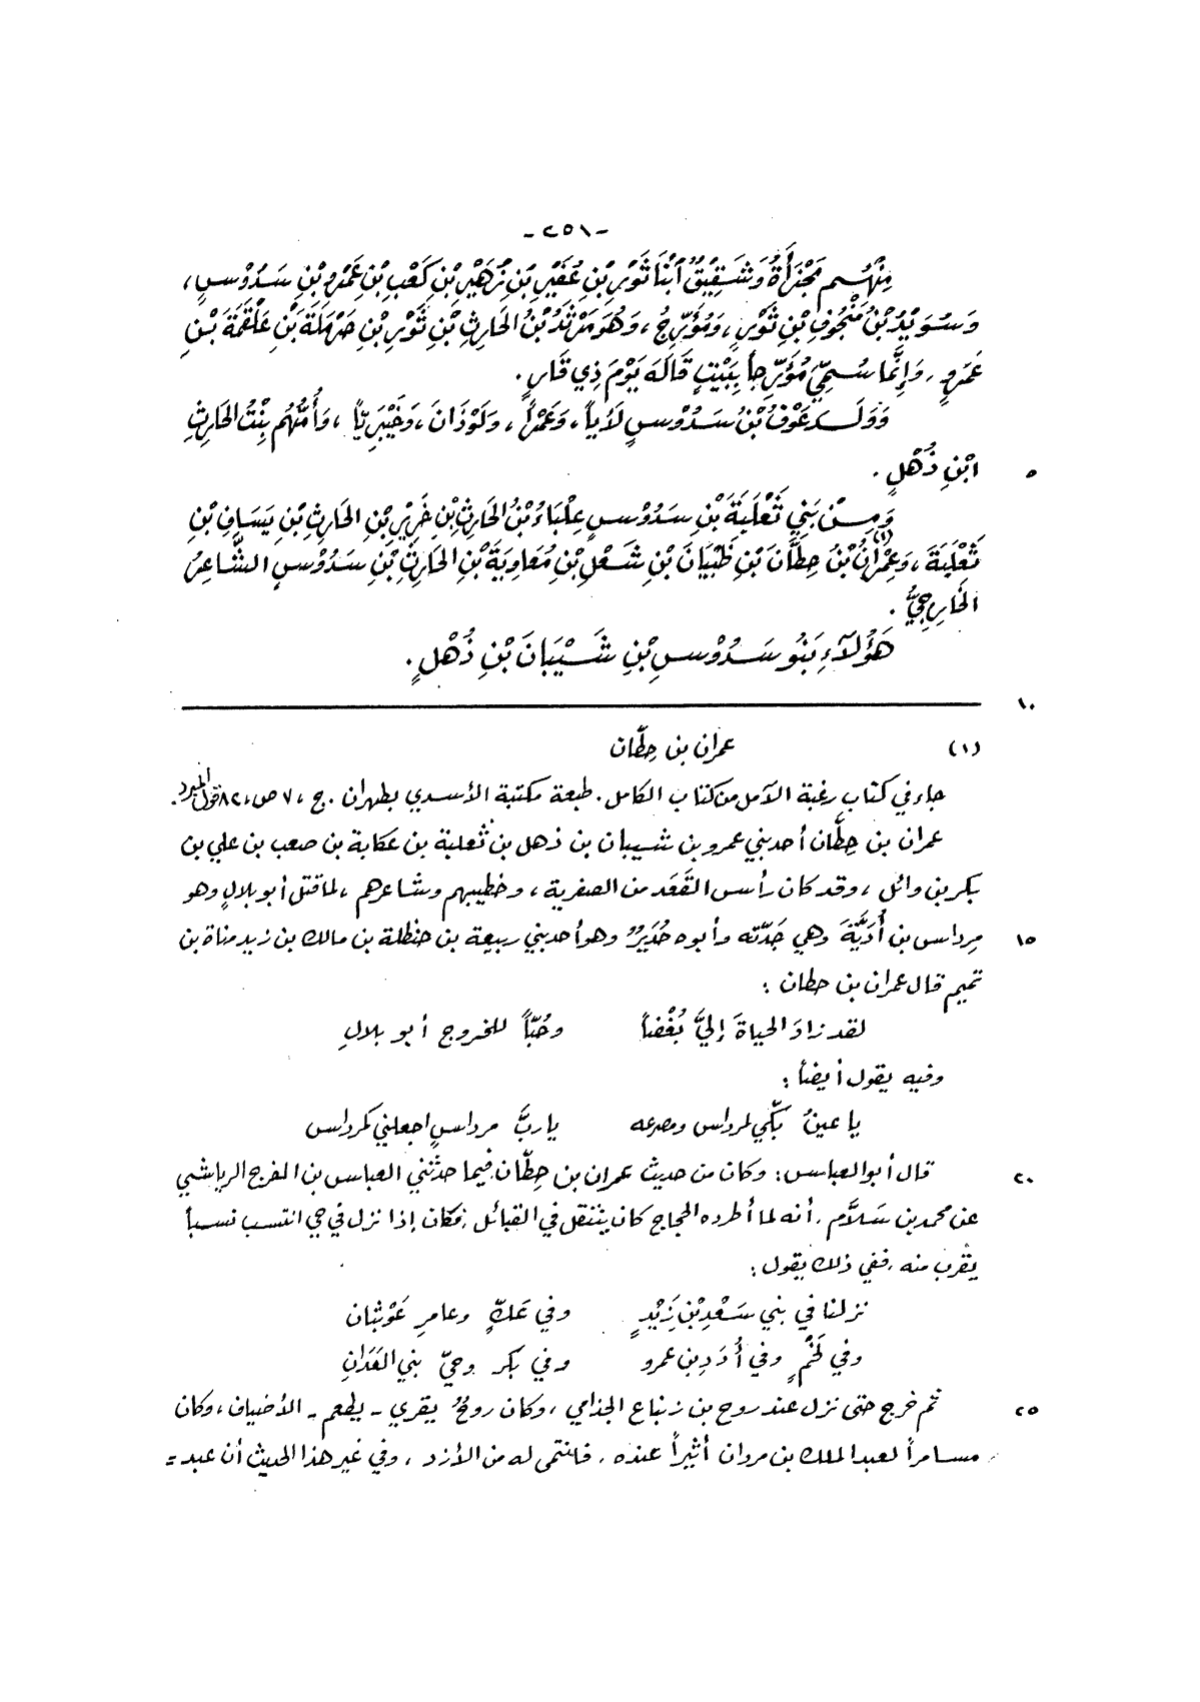 -٢٥١-
مِنْهُم مَجْزَأَةُ وَشَقِيْقٌ ابْنَا ثَوْرِ بْنِ عُفَيْرِ بْنِ زُهَيْرِ بْنِ كَعْبِ بْنِ عَمْرِو بْنِ سَدُوْسٍ،
وَسُوَيْدُ بْنُ مَنْجُوفِ بْنِ ثَوْرٍ، وَمُؤَرِّجُ، وَهُوَ مَرْثَدُ بْنُ الحَارِثِ بْنِ ثَوْرِ بْنِ حَرْمَلَةَ بْنِ عَلْقَمَةَ بْنِ
عَمْرٍو، وَإِنَّمَا سُمِّيَ مُؤَرِّجاً بِبَيْتٍ قَالَهُ يَوْمَ ذِي قَارٍ.
وَوَلَـدَ عَوْفُ بْنُ سَدُوْسٍ لَأْياً، وَعَمْراً، وَلَوْذَانَ، وَخَيْبَرِيّاً، وَأُمُّهُم بِنْتُ الحَارِثِ
٥ ابْنِ ذُهْلٍ.
وَمِـنْ بَنِي ثَعْلَبَةَ بْنِ سَدُوْسٍ عِلْبَاءُ بْنُ الحَارِثِ بْنِ خَرِيْرِ بْنِ الحَارِثِ بْنِ يَسَافِ بْنِ
ثَعْلَبَةَ، وَعِمْرَانُ(١) بْنُ حِطَّانَ بْنِ ظَبْيَانَ بْنِ شَعْلِ بْنِ مُعَاوِيَةَ بْنِ الحَارِثِ بْنِ سَدُوْسٍ الشَّاعِرُ
الخَارِجِيُّ.
هَؤُلَاءِ بَنُو سَدُوْسِ بْنِ شَيْبَانَ بْنِ ذُهْلٍ.
١٠
(١) عمران بن حِطَّان
جاء في كتاب رغبة الآمل من كتاب الكامل. طبعة مكتبة الأسدي بطهران. ج، ٧ ص، ٨٢ قول المبرد.
عمران بن حِطَّان أحد بني عمرو بن شيبان بن ذهل بن ثعلبة بن عكابة بن صعب بن علي بن
بكر بن وائل، وقد كان رأس القَعَد من الصفرية، وخطيبهم وشاعرهم، لما قتل أبو بلالٍ وهو
١٥ مِرداس بن أُدَيَّةَ وهي جَدّته وأبوه حُدَيرٌ وهو أحد بني ربيعة بن حنظلة بن مالك بن زيد مناة بن
تميم قال عمران بن حطان:
لقد زادَ الحياةَ إليَّ بُغْضاً وحُبّاً للخروج أبو بلالِ
وفيه يقول أيضاً:
يا عينُ بَكّي لمرداس ومصرعه ياربَّ مرداسٍ اجعلني كمرداسِ
٢٠ قال أبو العباس: وكان من حديث عمران بن حِطّان فيما حدّثني العباس بن الفرج الرياشي
عن محمد بن سَلاَّم، أنه لما أطرده الحجاج كان يتنقل في القبائل، فكان إذا نزل في حي انتسب نسباً
يقرب منه، ففي ذلك يقول:
نزلنا في بني سَعْدِ بْنِ زَيْدٍ وفي عَكٍّ وعامرِ عَوْثبان
وفي لَخْمٍ وفي أُدَدِ بن عمرو وفي بكر وحيّ بني العَدَانِ
٢٥ ثم خرج حتى نزل عند روح بن زنباع الجذامي، وكان روحٌ يقري - يطعم - الأضياف، وكان
مسامراً لعبد الملك بن مروان أثيراً عنده، فانتمى له من الأزد، وفي غير هذا الحديث أن عبد =